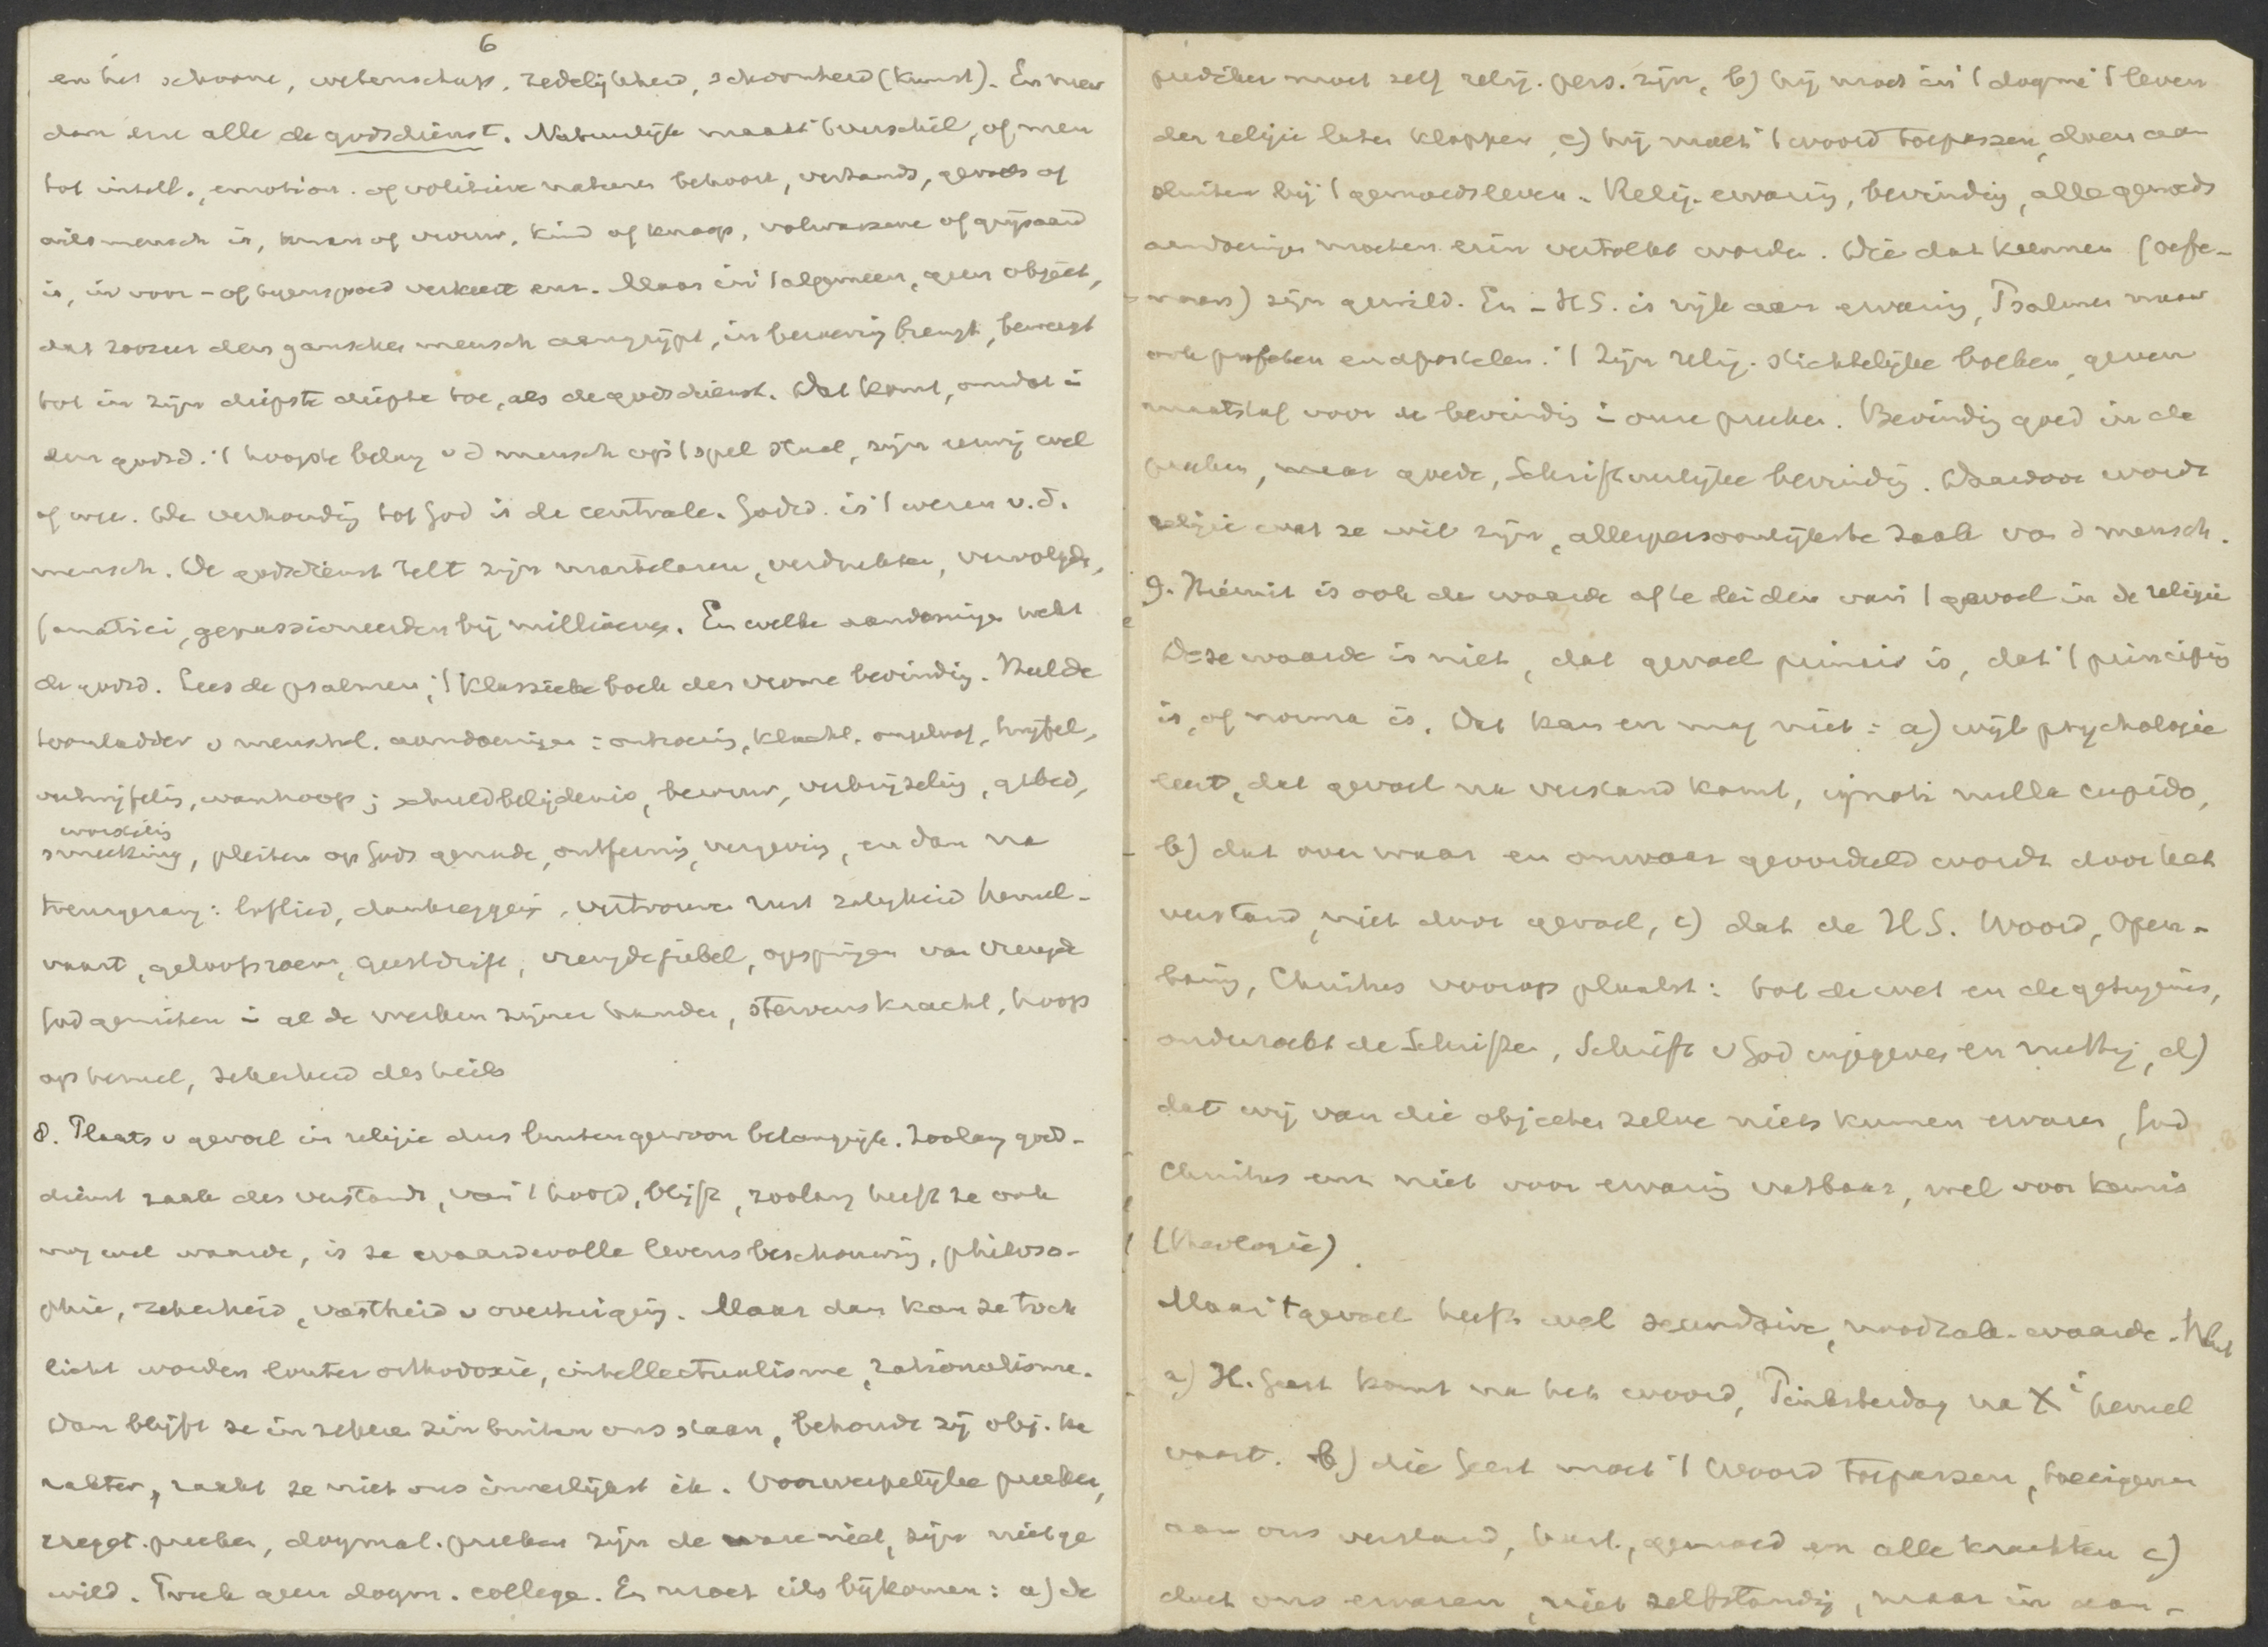 6
en het schoone, wetenschap, zedelijkheid, schoonheid (kunst). En meer
dan eene alle de godsdienst. Natuurlijk maakt 't verschil, of men
tot intell., emotion. of volitieve naturen behoort, verstands, gevoels of
wilsmensch is, man of vrouw, kind of knaap, volwassene of grijsaard
is, in voor- of tegenspoed verkeert enz. Maar in 't algemeen, geen object,
dat zoozeer den ganschen mensch aangrijpt, in beroering brengt, beweegt
tot in zijn diepste diepte toe, als de godsdienst. Dat komt, omdat i
den godsd. 't hoogste belang v d mensch op 't spel staat, zijn eeuwig wel
of wee. De verhoudig tot God is de centrale. Godsd. is 't wezen v. d.
mensch. De godsdienst telt zijn martelaren, verdrukten, vervolgde,
fanatici, gepassioneerden bij millioenen. En welke aandoenige wekt
de godsd. Lees de psalmen, 't klassieke boek der vrome bevindig. Heel de
toonladder v menschel. aandoeninge: ontroerig, klacht, ongeloof, twijfel,
vertwijfelig, wanhoop; schuldbelijdenis, berouw, verbrijzelig, gebed,
worstelig
smeeking, pleiten op Gods genade, ontfermig, vergevig, en dan na
treurgezang: loflied, dankzeggig, vertrouwe rust zaligheid hemel-
vaart, geloofsroem, geestdrift, vreugdejubel, opspringen van vreugde
God genieten i al de werken zijner handen, stervenskracht, hoop
op hemel, zekerheid des heils
8. Plaats v gevoel in religie dus buitengewoon belangrijk. Zoolang gods-
dienst zaak des verstands, van 't hoofd, blijft, zoolang heeft ze ook
nog wel waarde, is ze waardevolle levensbeschouwig, philoso-
phie, zekerheid, vastheid v overtuigig. Maar dan kan ze toch
licht worden louter orthodoxie, intellectualisme, rationalisme.
Dan blijft ze in zekere zin buiten ons staan, behoudt zij obj. ka
rakter, raakt ze niet ons innerlijkst ik. Voorwerpelijke preeken,
exeget. preeken, dogmat. preeken zijn de ware niet, zijn niet ge
wild. Preek geen dogm. college. Er moet iets bijkomen: a) de
prediker moet zelf relig. pers. zijn, b) hij moet in 't dogme 't leven
der religie laten kloppen, c) hij moet 't woord toepassen, doen aan
sluiten bij 't gemoedsleven. Relig. ervarig, bevindig, alle gemoeds
aandoeninge moeten erin vertolkt worden. Die dat kunnen (oefe-
naars) zijn gewild. En – H.S. is rijk aan ervarig, Psalmen maar
ook profeten en apostelen. 't Zijn relig. stichtelijke boeken, geven
maatstaf voor de bevindig i onze preeken. Bevindig goed in de
preeken, maar goede, Schriftuurlijke bevindig. Daardoor wordt
religie wat ze wil zijn, allerpersoonlijkste zaak van d mensch.
9. Hieruit is ook de waarde af te leiden van 't gevoel in de religie
Deze waarde is niet, dat gevoel primair is, dat 't principium
is, of norma is. Dat kan en mag niet: a) wijl psychologie
leert, dat gevoel na verstand komt, ignoti nulla cupido,
b) dat over waar en onwaar geoordeeld wordt door het
verstand, niet door gevoel, c) dat de H.S. Woord, Open-
baring, Christus voorop plaatst: tot de wet en de getuigenis,
onderzoekt de Schriften, Schrift v God ingegeven en nuttig, d)
dat wij van die objecten zelve niets kunnen ervaren, God
Christus enz. niet voor ervarig vatbaar, wel voor kennis
(theologie).
Maar 't gevoel heeft wel secundaire, noodzak. waarde. Want
a) H. Geest komt na het woord, Pinksterdag na X i hemel
vaart. b) die Geest moet 't Woord toepassen, toeeigenen
aan ons verstand, hart, gemoed en alle krachten c)
doet ons ervaren, niet zelfstandig, maar in aan-